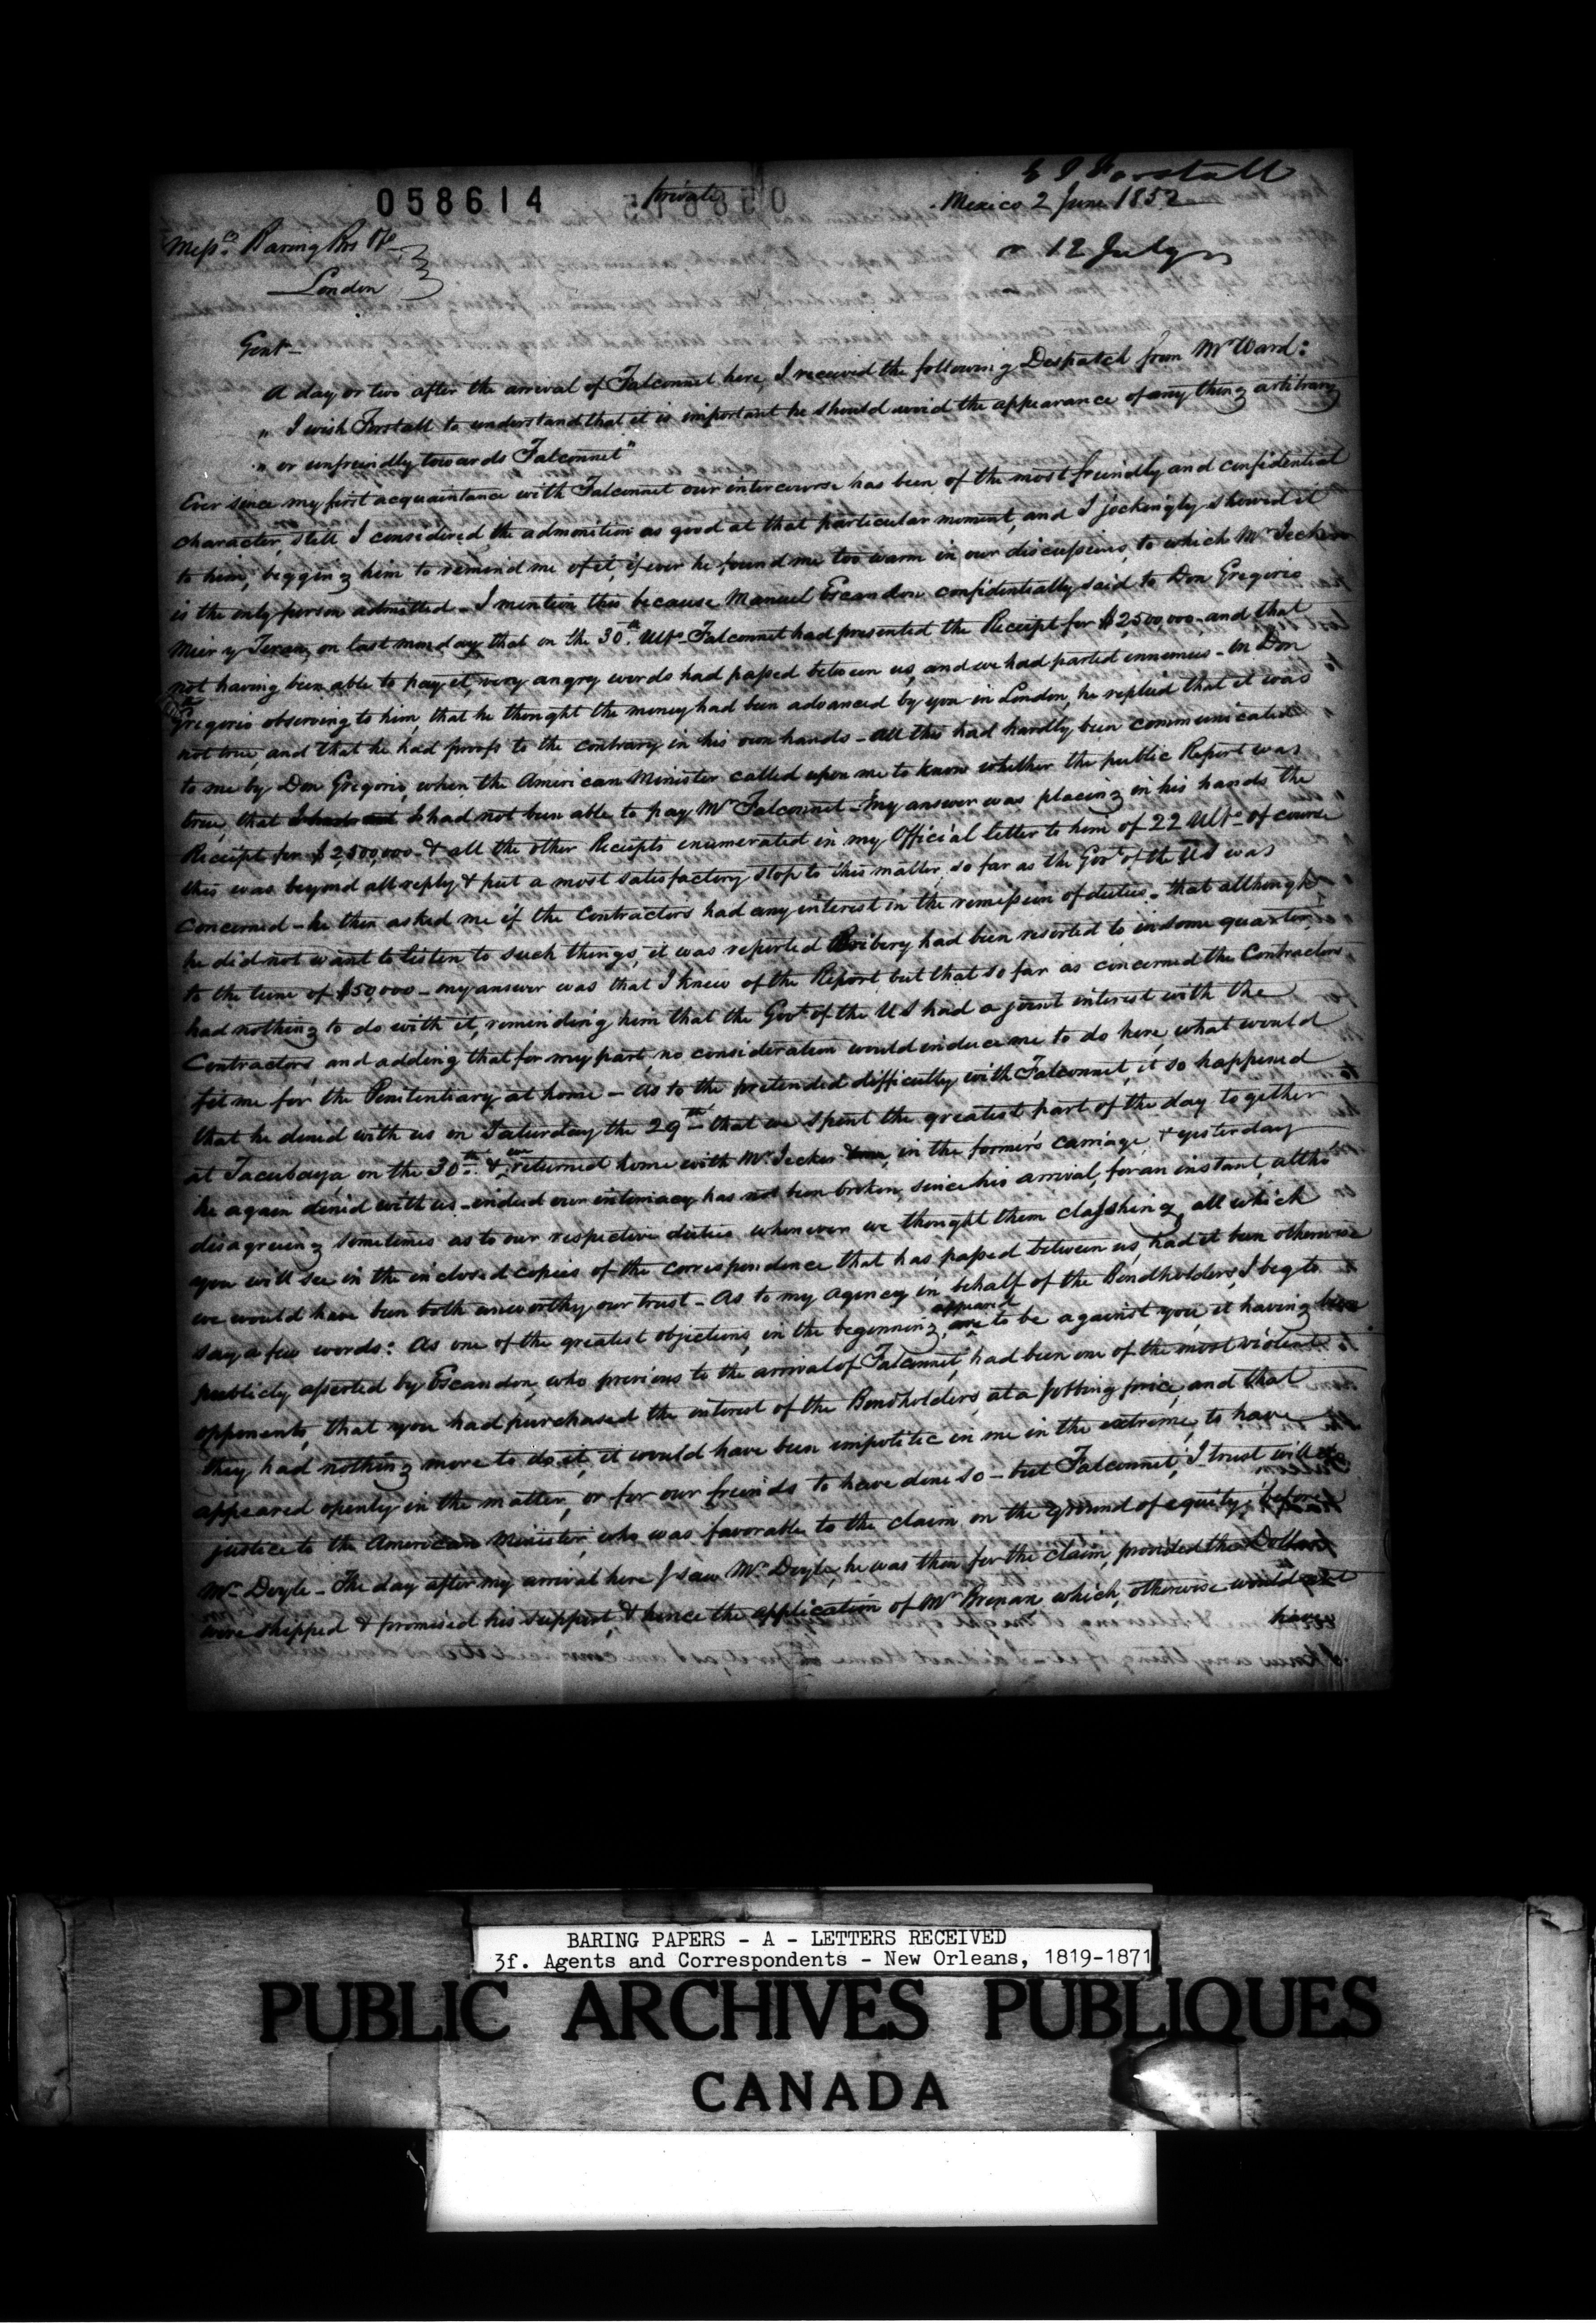 E J Forstall
058614
private
Mexico 2 June 1852
r 12 July
Mess.rs Baring Bros & Co
London
Gent.n
A day or two after the arrival of Falconnet here, I received the following Despatch from Mr Ward:
" I wish Forstall to understand that it is important he should avoid the appearance of any thing arbitrary
" or unfreindly towards Falconnet"
Ever since my first acquaintance with Falconnet our intercourse has been of the most freindly and confidential
character, still I considered the admonition as good at that particular moment, and I jockingly showed it
to him, begging him to remind me of it, if ever he found me too warm in our discussions, to which Mr Jecker
is the only person admitted - I mention this because Manuel Escandon confidentially said to Don Gregorio
Mier y Teran, on last monday that on the 30th Ulto Falconnet had presented the Receipt for $2,500,000 - and that
not having been able to pay it, very angry words had passed between us, and we had parted ennemies - on Don
Gregorio observing to him, that he thought the money had been advanced by you in London, he replied that it was
not true, and that he had proofs to the contrary in his own hands - All this had hardly been communicated
to me by Don Gregorio, when the American Minister called upon me to know whether the public Report was
true, that I had not been able to pay Mr Falconnet - My answer was placing in his hands the
Receipt for $2,500,000 - & all the other Receipts enumerated in my Official letter to him of 22 Ulto - of course
this was beyond all reply & put a most satisfactory stop to this matter, so far as the Govt of the US was
concerned - he then asked me if the Contractors had any interest in the remission of duties - that although
he did not want to listen to such things, it was reported Bribery had been resorted to in some quarter,
to the tune of $50,000 - my answer was that I knew of the Report but that so far as concerned the Contractors
had nothing to do with it, reminding him that the Govt of the US had a joint interest with the
Contractors and adding that for my part, no consideration would induce me to do here, what would
fit me for the Penitentiary at home - As to the pretended difficulty with Falconnet, it so happened
that he dined with us on Saturday the 29th - that we spent the greatest part of the day together
at Tacubaya on the 30th & we returned home with Mr Jecker in the former's carriage, & yesterday
he again dined with us - indeed our intimacy has not been broken, since his arrival, for an instant, altho'
disagreeing sometimes as to our respective duties whenever we thought them classhing, all which
you will see in the inclosed copies of the correspondence that has passed between us, had it been otherwise
we would have been both unworthy our trust - As to my agency in behalf of the Bondholders, I beg to
say a few words: As one of the greatest objections, in the beginning, appeared to be against you, it having been
publicly asserted by Escandon, who previous to the arrival of Falconnet, had been one of the most violent
opponents, that you had purchased the interest of the Bondholders, at a jobbing price, and that
they had nothing more to do it, it would have been impolitic in me in the extreme, to have
appeared openly in the matter, or for our freinds to have done so - but Falconnet, I trust will do
justice to the American Minister, who was favorable to the claim on the ground of equity, before
Mr Doyle - The day after my arrival here I saw Mr Doyle, he was then for the claim, provided the Dollars
were shipped & promised his support, & hence the application of Mr which, otherwise would not
have
BARING PAPERS - A - LETTERS RECEIVED
3f. Agents and Correspondents - New Orleans, 1819-1871
PUBLIC ARCHIVES PUBLIQUES
CANADA